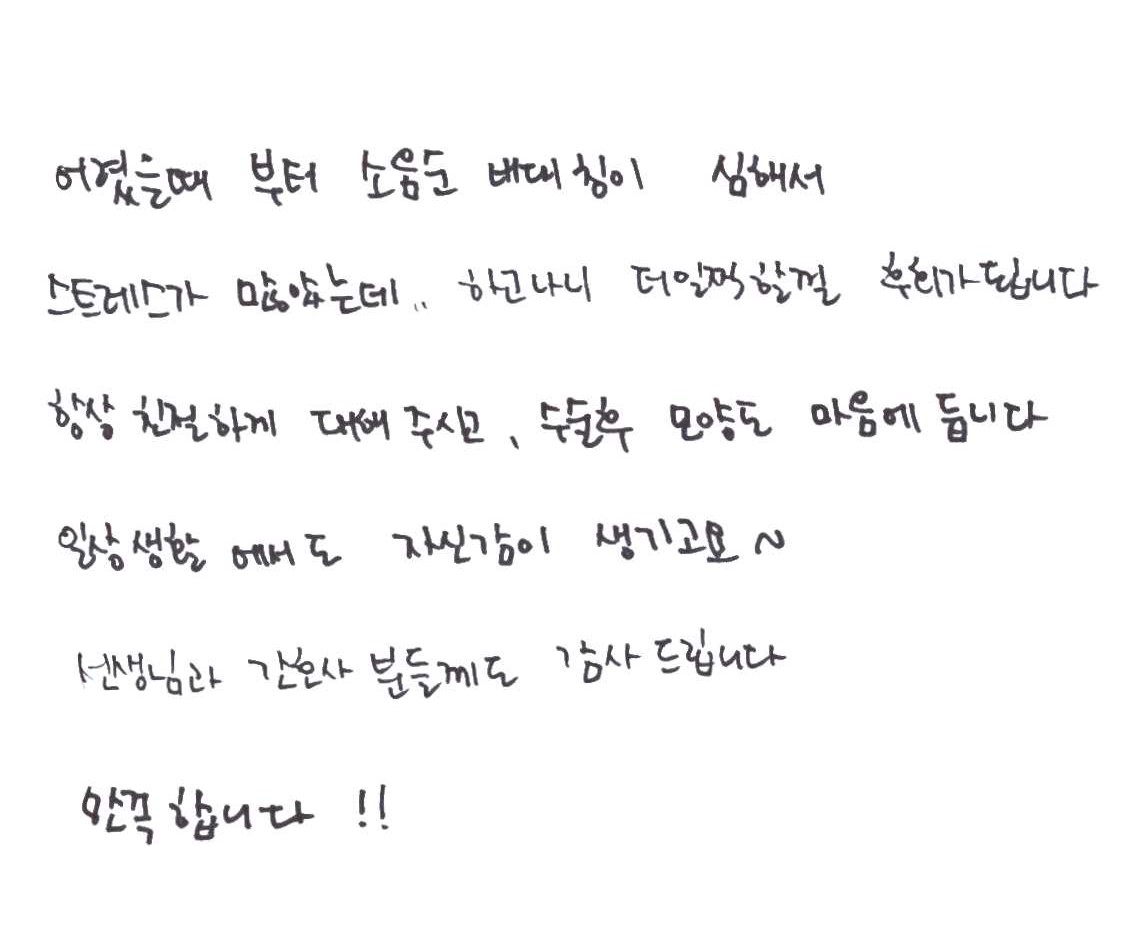 어렸을때 부터 소음순 비대칭이 심해서
스트레스가 많았는데.. 하고나니 더일찍할껄 후회가됩니다
항상 친절하게 대해 주시고, 수술후 모양도 마음에 듭니다
일상생활 에서도 자신감이 생기고요~
선생님과 간호사 분들께도 감사 드립니다
만족 합니다 !!